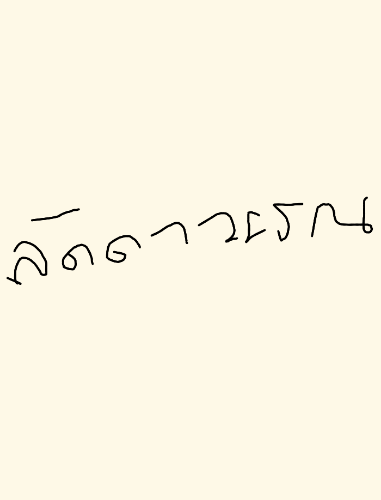 ลัดดาวรรณ